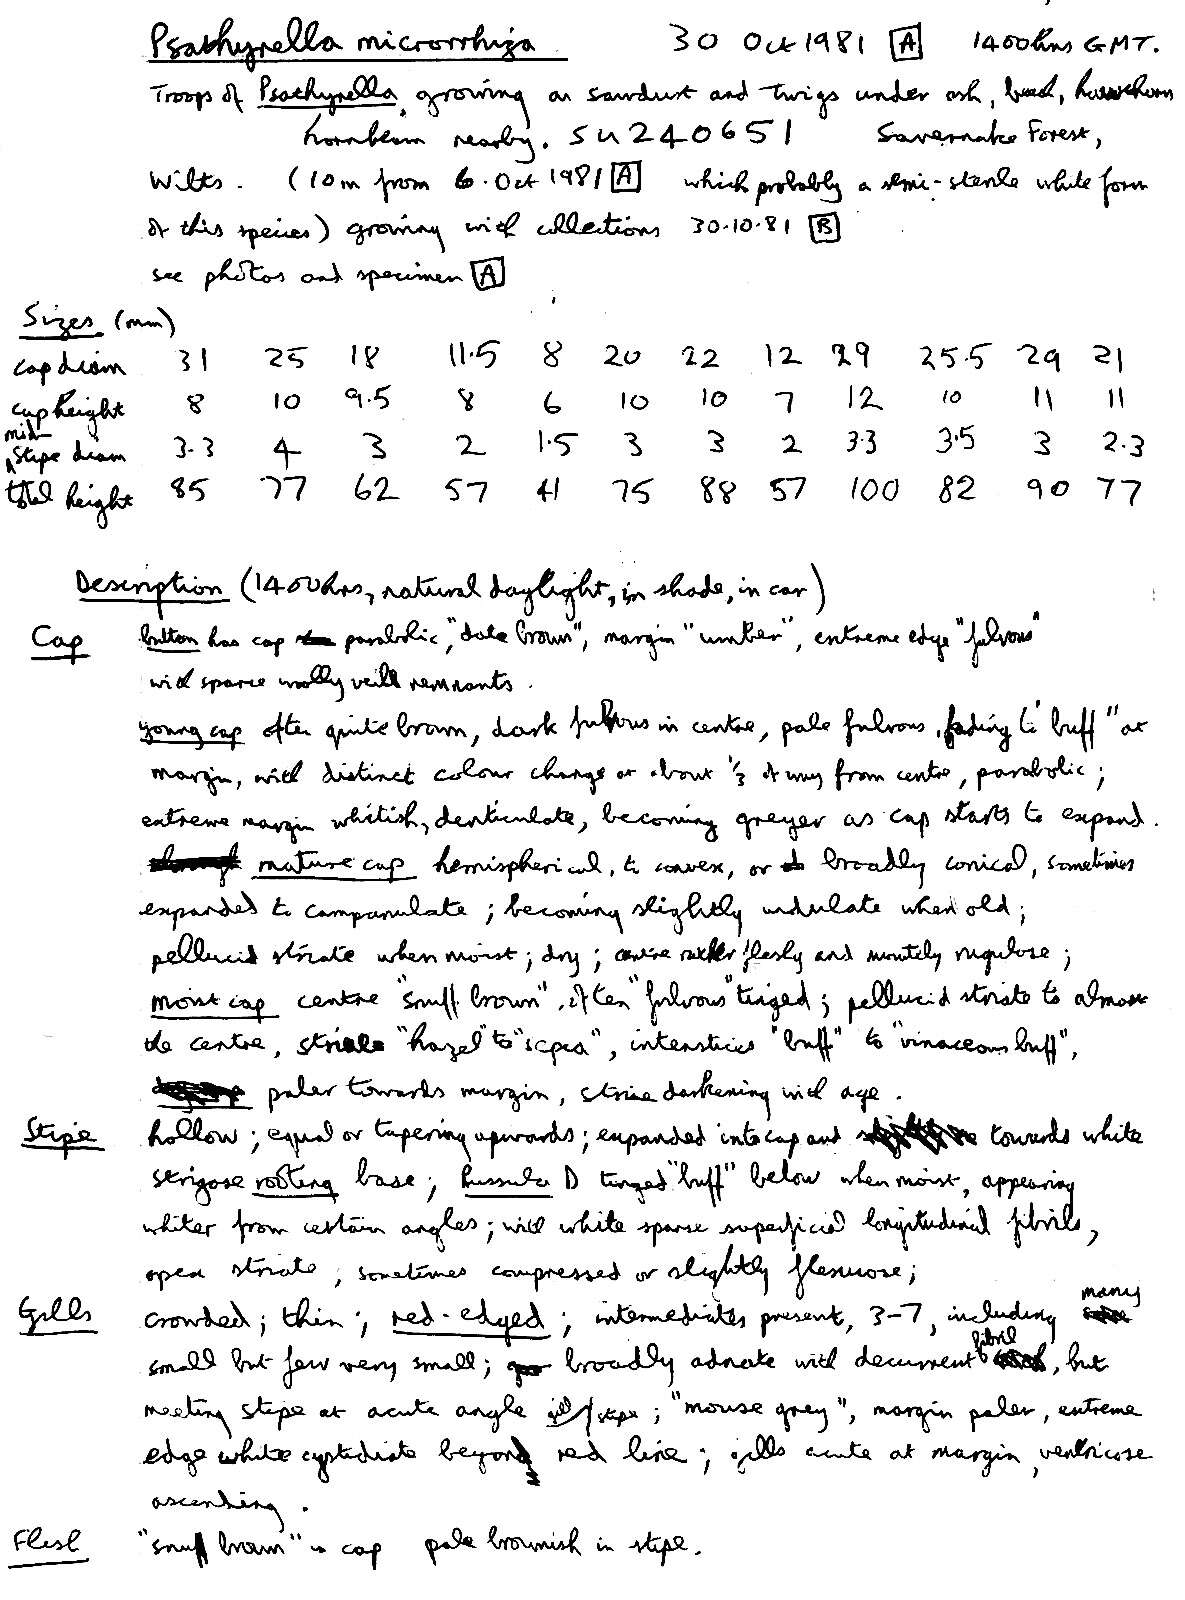 Psathyrella microrrhiza 30 Oct 1981 [A] 1400hrs GMT.
Troops of Psathyrella, growing on sawdust and twigs under ash, beech, hawthorn
hornbeam nearby. SU240651 Savernake Forest,
Wilts. (10m from 6.Oct 1981 [A] which probably a semi-sterile white form
of this species) growing with collections 30.10.81 [B]
see photos and specimen [A]
Sizes (mm)
cap diam 31 25 18 11.5 8 20 22 12 29 25.5 29 21
cap height 8 10 9.5 8 6 10 10 7 12 10 11 11
mid-
stipe diam 3.3 4 3 2 1.5 3 3 2 3.3 3.5 3 2.3
total height 85 77 62 57 41 75 88 57 100 82 90 77
Description (1400hrs, natural daylight, in shade, in car)
Cap button has cap parabolic, "date brown", margin "umber", extreme edge "fulvous"
with sparse woolly veil remnants.
young cap often quite brown, dark fulvous in centre, pale fulvous, fading to "buff" at
margin, with distinct colour change at about 1/3 of way from centre, parabolic;
extreme margin whitish, denticulate, becoming greyer as cap starts to expand.
mature cap hemispherical, to convex, or broadly conical, sometimes
expanded to campanulate; becoming slightly undulate when old;
pellucid striate when moist; dry; centre rather fleshy and minutely rugulose;
moist cap centre "snuff brown", often "fulvous" tinged; pellucid striate to almost
the centre, striae "hazel" to "sepia", interstices "buff" to "vinaceous buff",
paler towards margin, striae darkening with age.
Stipe hollow; equal or tapering upwards; expanded into cap and towards white
strigose rooting base; Russula D tinged "buff" below when moist, appearing
whiter from certain angles; with white sparse superficial longitudinal fibrils,
apex striate; sometimes compressed or slightly flexuose;
Gills crowded; thin; red-edged; intermediates present, 3-7, including many
small but few very small; broadly adnate with decurrent fibril, but
meeting stipe at acute angle gill/stipe; "mouse grey", margin paler, extreme
edge white cystidiate beyond red line; gills acute at margin, ventricose
ascending.
Flesh "snuff brown" in cap pale brownish in stipe.